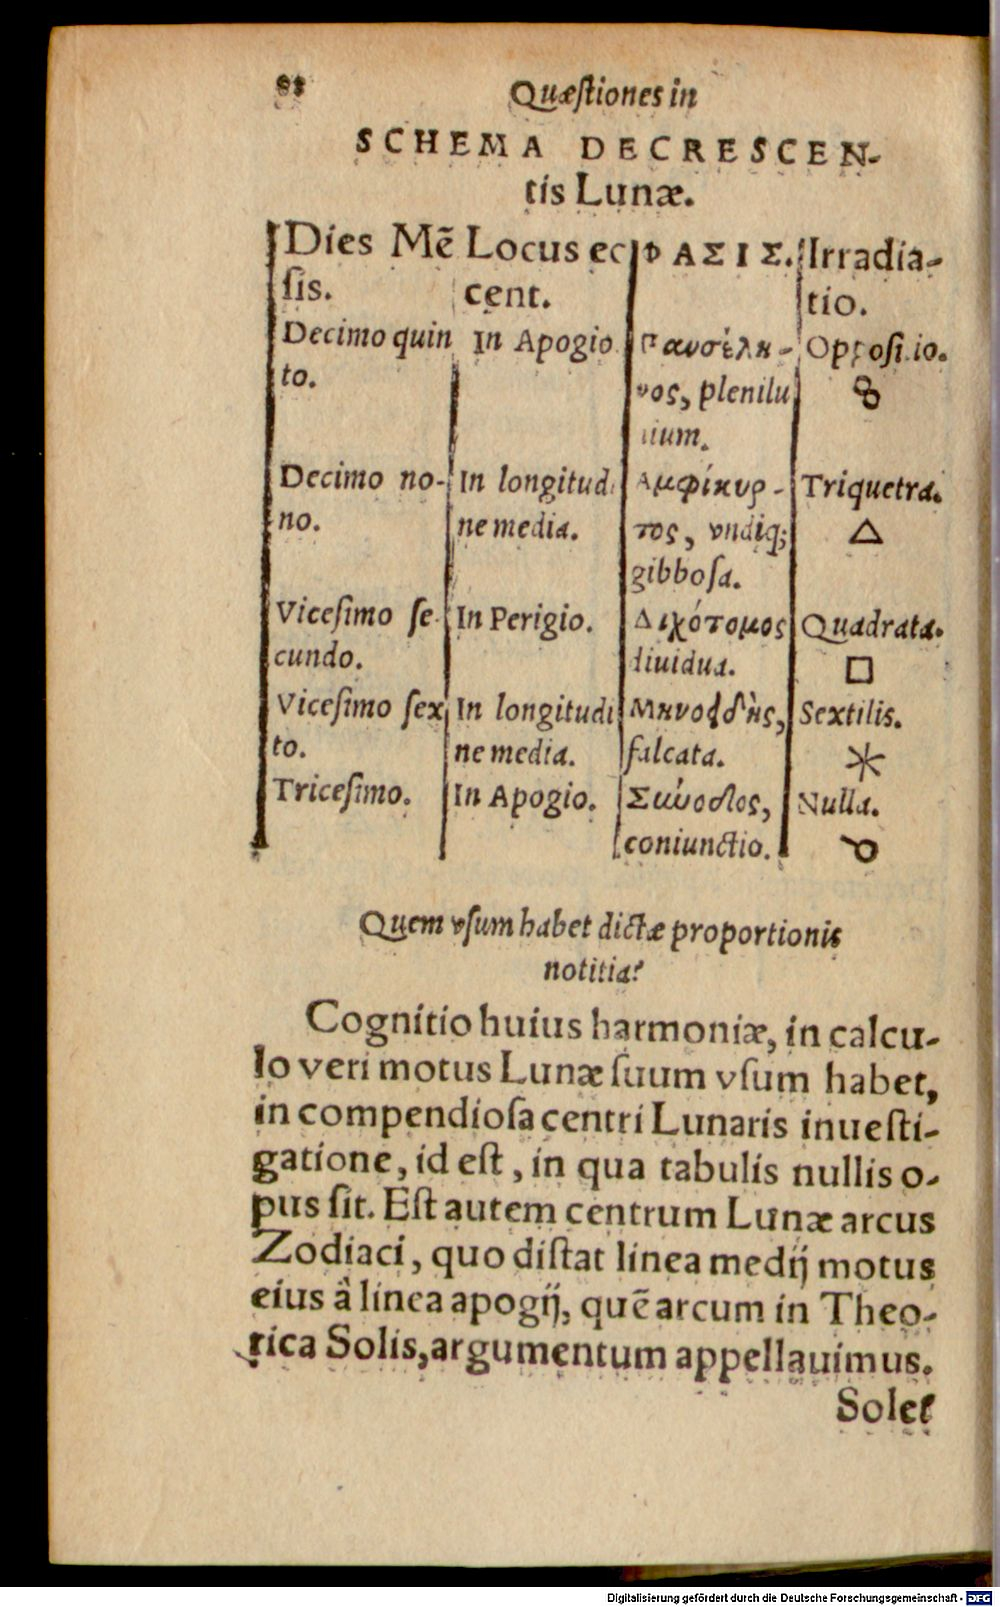 82 Quæſtiones in
SCHEMA DECRESCEN-
tis Lunæ.
Dies Mẽ Locus ec ΦΑΣΙΣ. Irradia-
ſis. cent. tio.
Decimo quin In Apogio Πανσέλη- Oppoſitio.
to. νος, plenilu ☍
nium.
Decimo no- In longitudi Αμφίκυρ- Triquetra.
no. ne media. τος, vndiq; △
gibboſa.
Viceſimo ſe- In Perigio. Διχότομος Quadrata.
cundo. diuidua. □
Viceſimo ſex In longitudi Μηνοειδὴς, Sextilis.
to. ne media. falcata. ⚹
Triceſimo. In Apogio. Σύνοδος, Nulla.
coniunctio. ☌
Quem vſum habet dictæ proportionis
notitia?
Cognitio huius harmoniæ, in calcu-
lo veri motus Lunæ ſuum vſum habet,
in compendioſa centri Lunaris inueſti-
gatione, id eſt, in qua tabulis nullis o-
pus ſit. Eſt autem centrum Lunæ arcus
Zodiaci, quo diſtat linea medij motus
eius à linea apogij, quẽ arcum in Theo-
rica Solis, argumentum appellauimus.
Solet
Digitalisierung gefördert durch die Deutsche Forschungsgemeinschaft - DFG